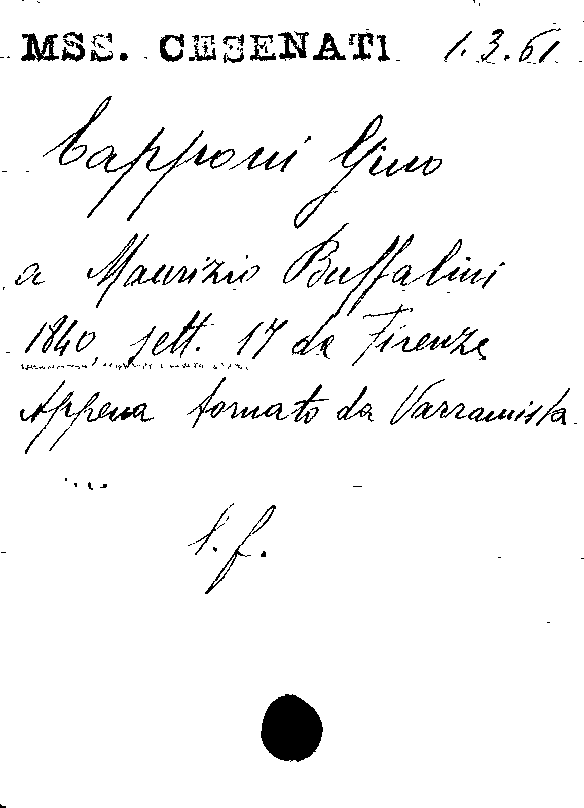 MSS. CESENATI 1.3.61
Capponi Gino
a Maurizio Buffalini
1840, sett. 17 da Firenze
Appena tornato da Varramista
....
l. f.